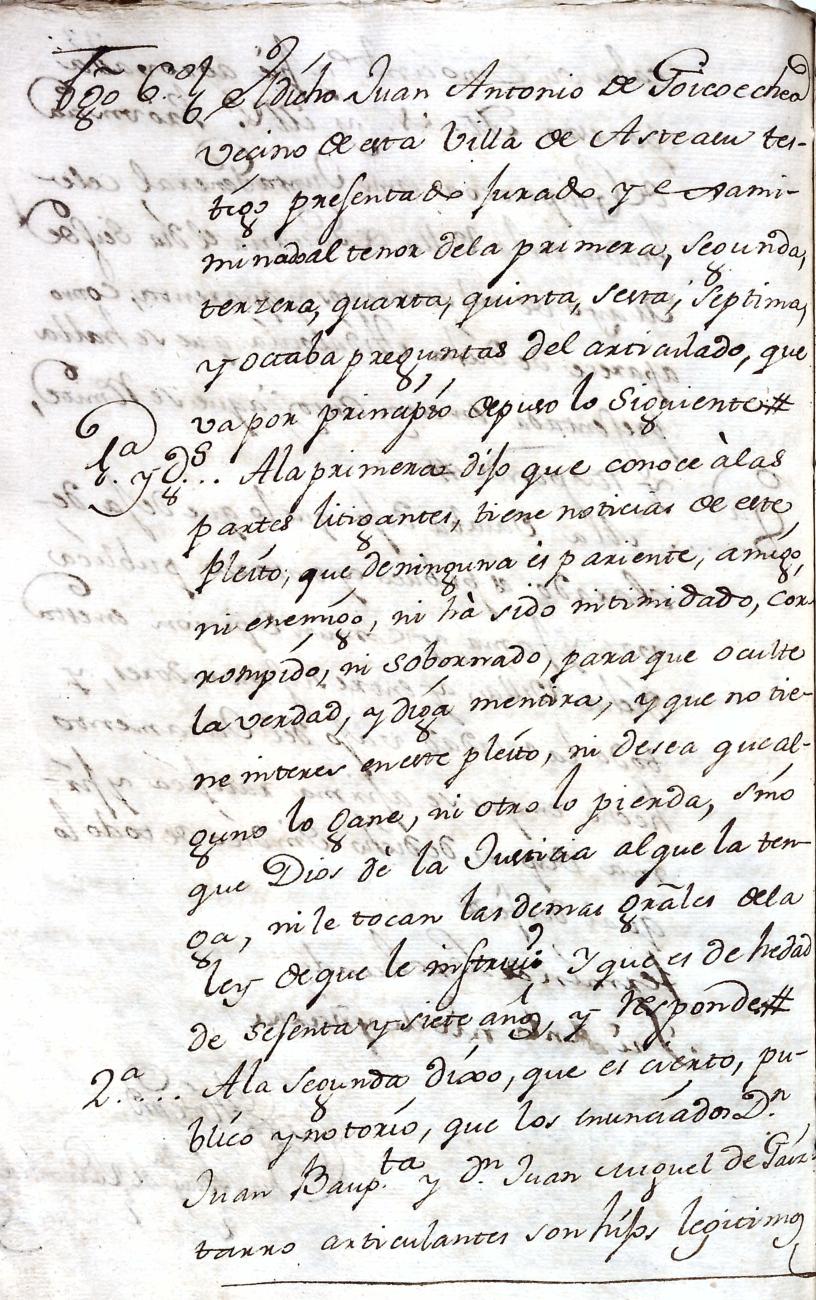 Tgo 6.º El dicho Juan Antonio de Goicoechea
vecino de esta Villa de Asteasu tes-
tigo presentado Jurado y exami-
minado al tenor dela primera, segunda,
terzera, quarta, quinta, sesta, septima,
y octaba preguntas del articulado, que
va por principio depuso lo Siguiente #
1.ª y Gs... Ala primera dijo que conoce àlas
partes litigantes, tiene noticias de este
Pleito, que deninguna ès pariente, amigo,
ni enemigo, ni hà sido intimidado, cor-
rompido, ni sobornado, para que oculte
la verdad, y diga mentira, y que no tie-
ne interes eneste pleito, ni desea queal-
guno lo gane, ni otro lo pierda, sino
que Dios dè la Justicia alque la ten-
ga, ni le tocan las demas grãles dela
ley deque le instrui Y que es de hedad
de sesenta y siete años, y responde #
2.ª... Ala segunda dixo, que es cierto, pu-
blico y notorio, que los enunciados D.n
Juan Baup.ta y d.n Juan Miguel de Gaiz-
tarro articulantes son hijos legitimos